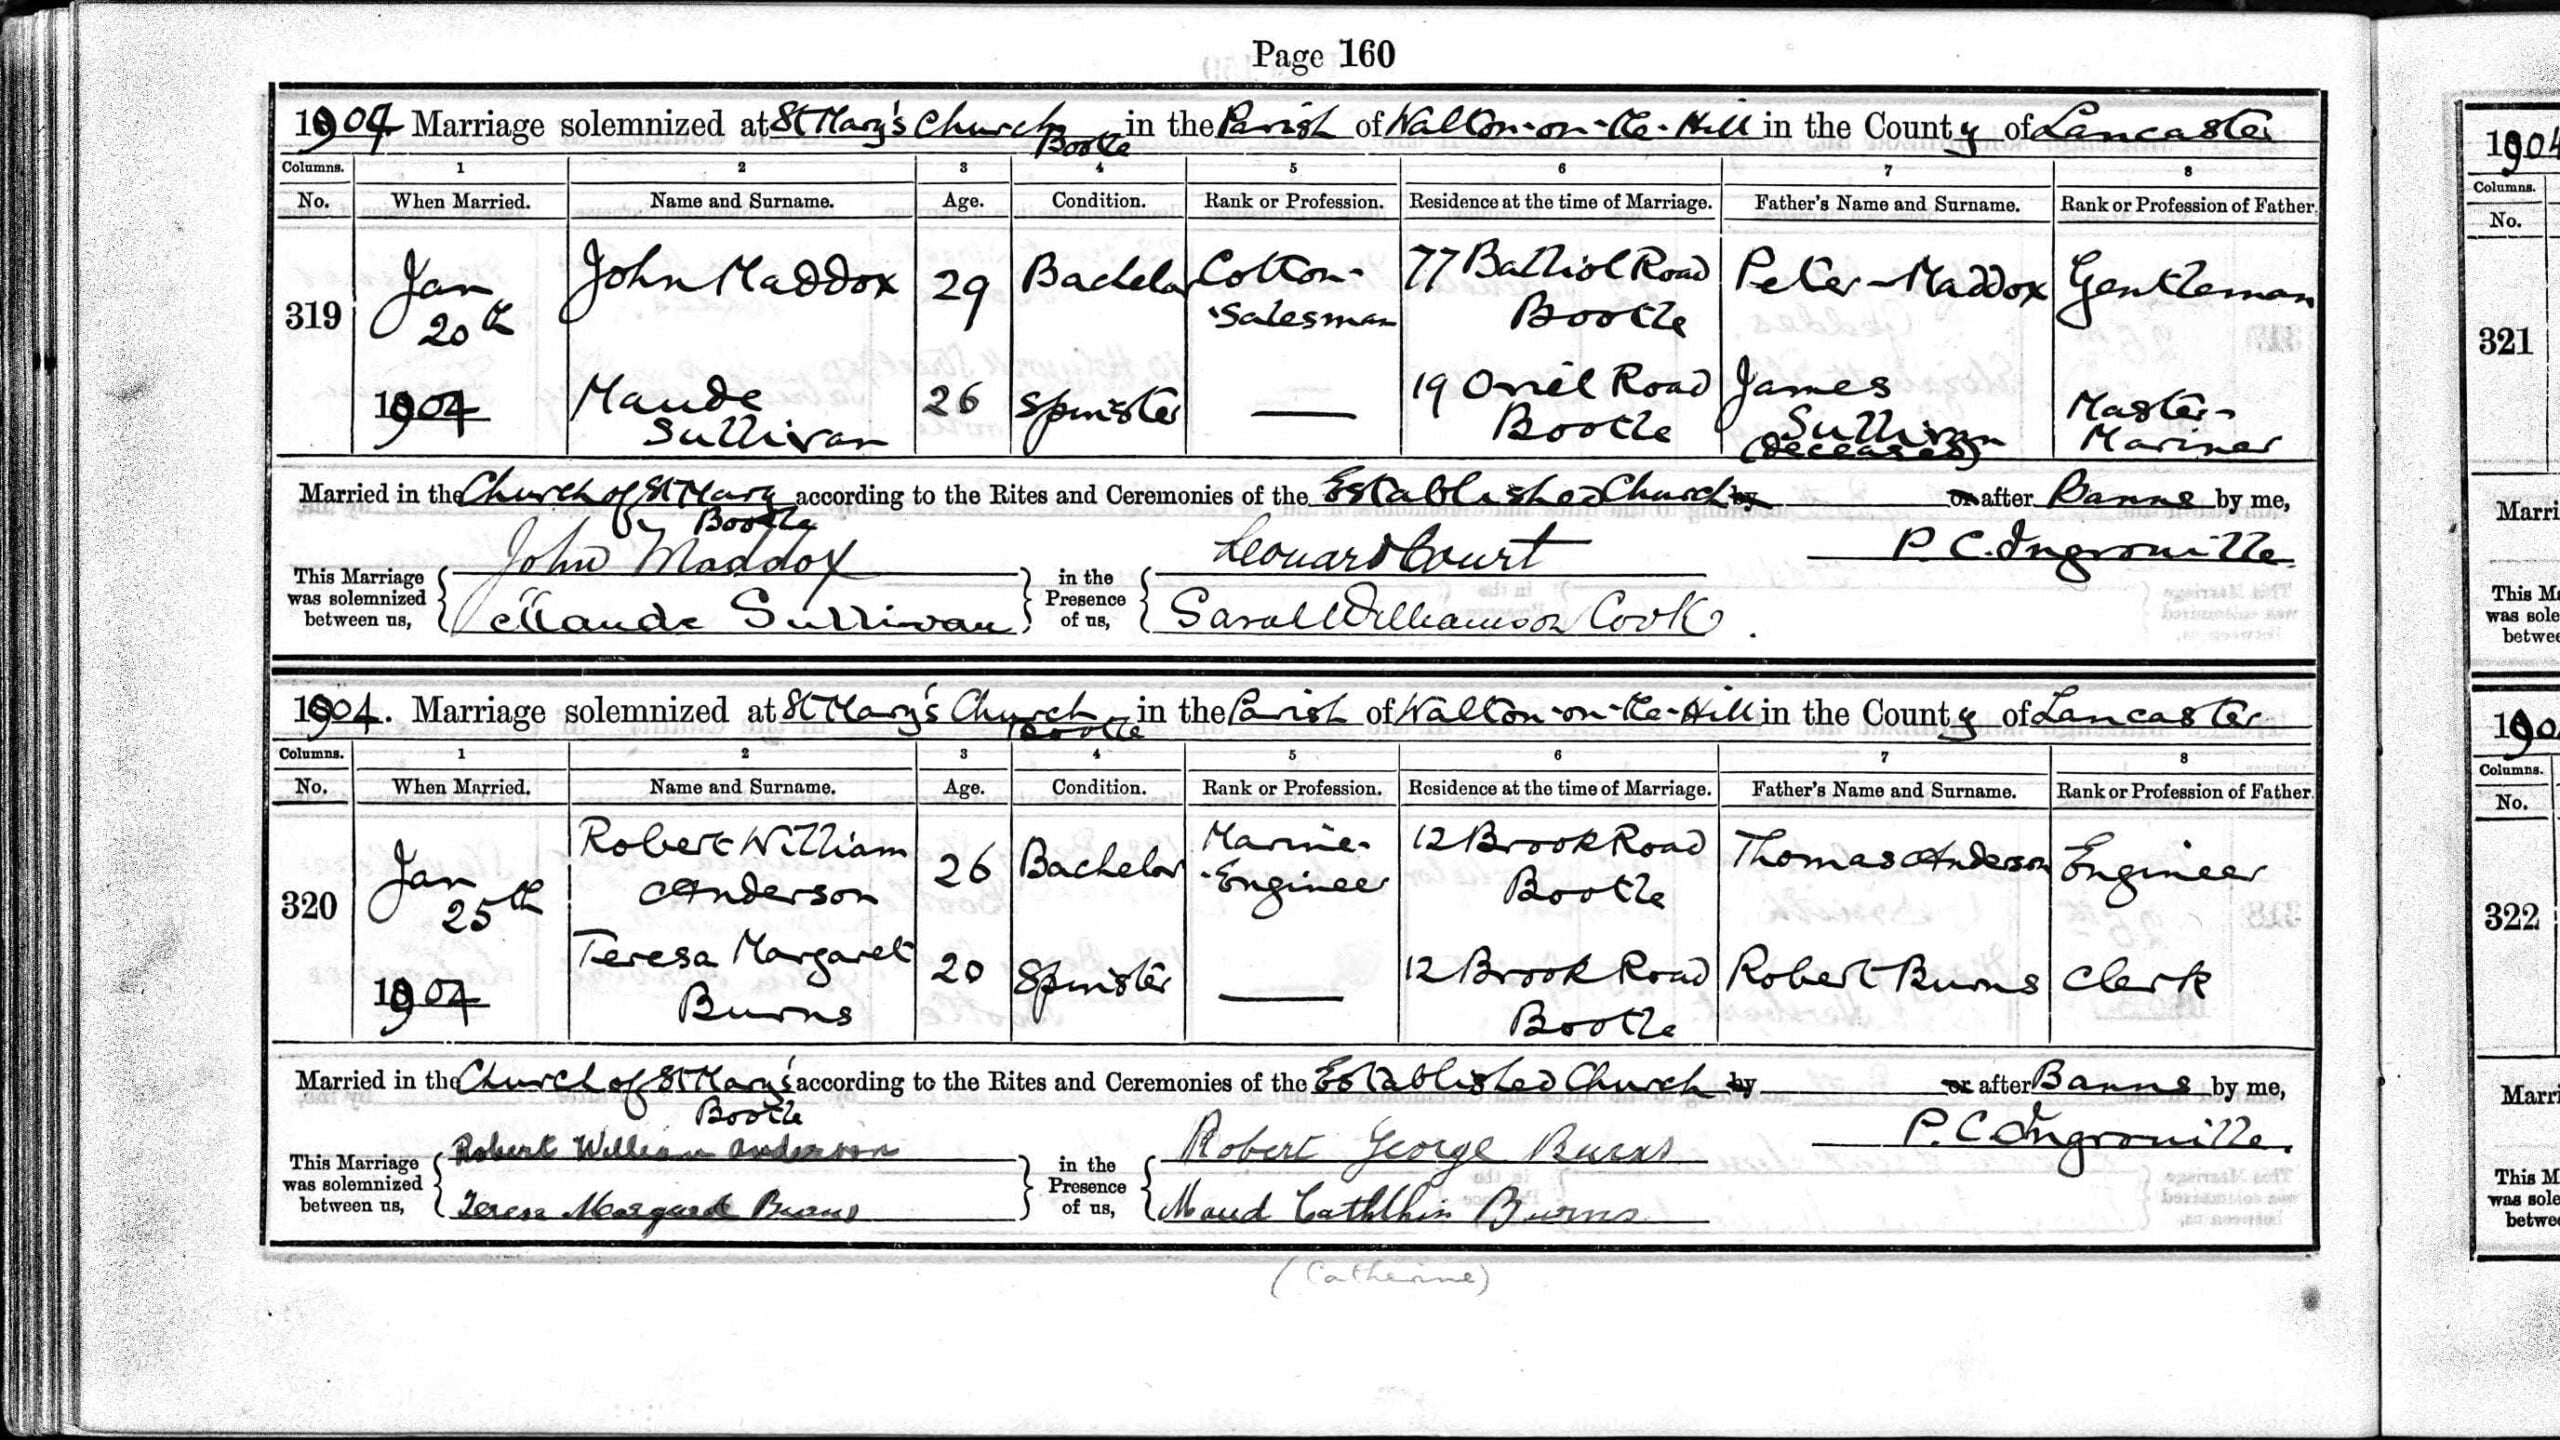 Page 160
1904 Marriage solemnized at St Mary's Church Bootle in the Parish of Walton-on-the-Hill in the County of Lancaster
Columns. 1 2 3 4 5 6 7 8
No. When Married. Name and Surname. Age. Condition. Rank or Profession. Residence at the time of Marriage. Father's Name and Surname. Rank or Profession of Father.
319 Jan 20th 1904 John Maddox 29 Bachelor Cotton-Salesman 77 Balliol Road Bootle Peter Maddox Gentleman
Maude Sullivan 26 Spinster — 19 Oriel Road Bootle James Sullivan (deceased) Master-Mariner
Married in the Church of St Mary Bootle according to the Rites and Ceremonies of the Established Church by or after Banns by me,
John Maddox Leonard Court P. C. Ingrouille
This Marriage was solemnized between us, in the Presence of us,
Maude Sullivan Sarah Williamson Cook.
1904. Marriage solemnized at St Mary's Church Bootle in the Parish of Walton-on-the-Hill in the County of Lancaster
Columns. 1 2 3 4 5 6 7 8
No. When Married. Name and Surname. Age. Condition. Rank or Profession. Residence at the time of Marriage. Father's Name and Surname. Rank or Profession of Father.
320 Jan 25th 1904 Robert William Anderson 26 Bachelor Marine-Engineer 12 Brook Road Bootle Thomas Anderson Engineer
Teresa Margaret Burns 20 Spinster — 12 Brook Road Bootle Robert Burns Clerk
Married in the Church of St Mary's Bootle according to the Rites and Ceremonies of the Established Church by or after Banns by me,
Robert William Anderson Robert George Burns P. C. Ingrouille.
This Marriage was solemnized between us, in the Presence of us,
Teresa Margaret Burns Maud Burns
(Catherine)
1904
Columns.
No.
321
Marri
This Ma
was sole
betwee
190
Columns.
No.
322
Marri
This M
was sole
betwee